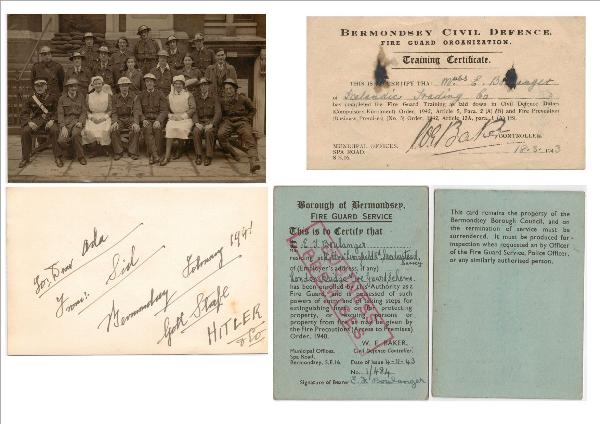 BERMONDSEY CIVIL DEFENCE.
FIRE GUARD ORGANIZATION.
Training Certificate.
THIS IS CERTIFY THA E. Boulanger
of Icelandic Trading Co
has completed the Fire Guard Training as laid down in Civil Defence Duties
(Compulsory Enrolment) Order, 1942, Article 5, Para. 2 (A) (B) and Fire Prevention
(Business Premises) (No. 3) Order, 1942, Article 12A, para. 1 (A) (B).
W E Baker
CONTROLLER.
MUNICIPAL OFFICES,
SPA ROAD,
S.E.16.
18-3-1943
To: Dear Ada
From: Sid
Bermondsey February 1941
Gott Strafe
HITLER
& Co.
Borough of Bermondsey.
FIRE GUARD SERVICE
This is to Certify that
E. J. Boulanger
of (Employer's address, if any)
London Bridge Fire Guard Scheme.
has been enrolled by this Authority as a
Fire Guard and is possessed of such
powers of entry and of taking steps for
extinguishing fire, or for protecting
property, or rescuing persons or
property from fire as may be given by
the Fire Precautions (Access to Premises)
Order, 1940.
BUSINESS
PREMISES
W. E. BAKER,
Civil Defence Controller.
Municipal Offices,
Spa Road,
Bermondsey, S.E.16.
Date of Issue 14-11-43
No. 1/484
Signature of Bearer E. J. Boulanger
This card remains the property of the
Bermondsey Borough Council, and on
the termination of service must be
surrendered. It must be produced for
inspection when requested by an Officer
of the Fire Guard Service, Police Officer,
or any similarly authorised person.